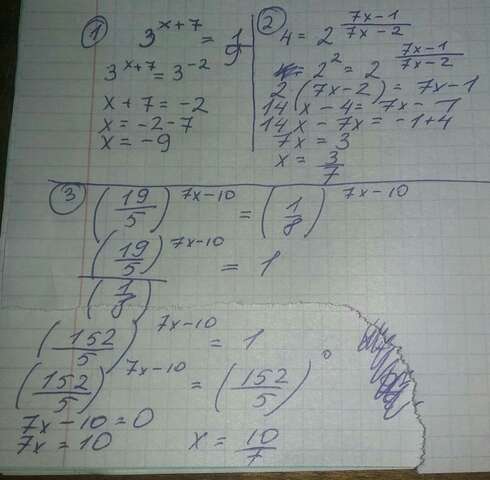 1
3^(x+7) = 1/9
3^(x+7) = 3^(-2)
x + 7 = -2
x = -2 - 7
x = -9
2
4 = 2^((7x-1)/(7x-2))
2^2 = 2^((7x-1)/(7x-2))
2(7x-2) = 7x-1
14x - 4 = 7x - 1
14x - 7x = -1+4
7x = 3
x = 3/7
3
(19/5)^(7x-10) = (1/8)^(7x-10)
(19/5)^(7x-10) / (1/8) = 1
(152/5)^(7x-10) = 1
(152/5)^(7x-10) = (152/5)^0
7x - 10 = 0
7x = 10
x = 10/7